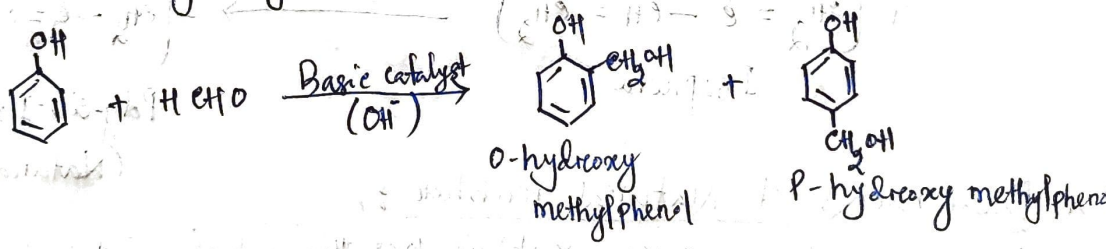 OH
OH
OH
+ HCHO
Basic catalyst
(OH⁻)
CH₂OH
+
CH₂OH
O-hydroxy
methylphenol
P-hydroxy methylpheno